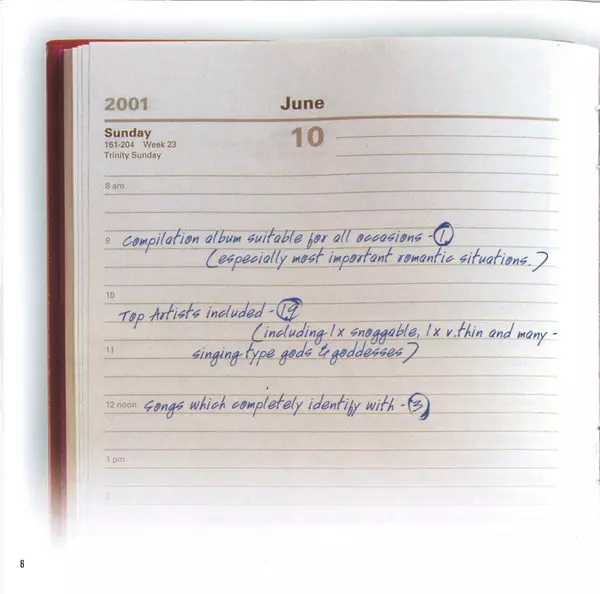 2001 June
Sunday 10
161-204 Week 23
Trinity Sunday
8 am
9 Compilation album suitable for all occasions - 1
(especially most important romantic situations.)
10
Top Artists included - 19
(including 1x snoggable, 1x v.thin and many -
11 singing type gods & goddesses)
12 noon Songs which completely identify with - 3
1 pm
2
6